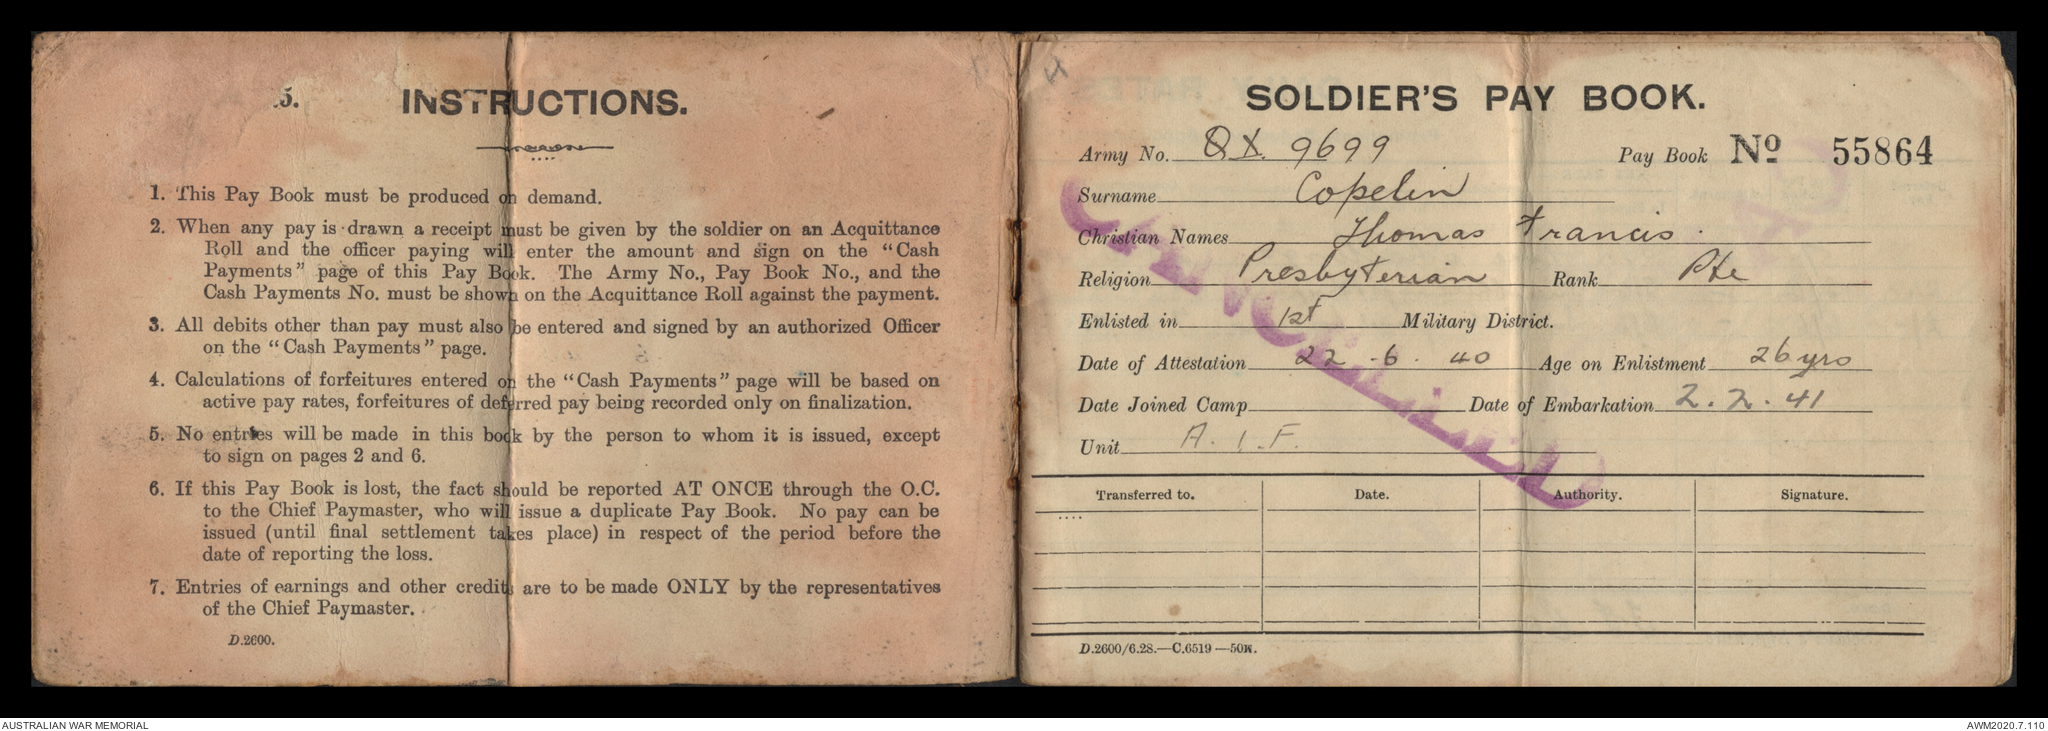 5.
INSTRUCTIONS.
1. This Pay Book must be produced on demand.
2. When any pay is drawn a receipt must be given by the soldier on an Acquittance
Roll and the officer paying will enter the amount and sign on the "Cash
Payments" page of this Pay Book. The Army No., Pay Book No., and the
Cash Payments No. must be shown on the Acquittance Roll against the payment.
3. All debits other than pay must also be entered and signed by an authorized Officer
on the "Cash Payments" page.
4. Calculations of forfeitures entered on the "Cash Payments" page will be based on
active pay rates, forfeitures of deferred pay being recorded only on finalization.
5. No entries will be made in this book by the person to whom it is issued, except
to sign on pages 2 and 6.
6. If this Pay Book is lost, the fact should be reported AT ONCE through the O.C.
to the Chief Paymaster, who will issue a duplicate Pay Book. No pay can be
issued (until final settlement takes place) in respect of the period before the
date of reporting the loss.
7. Entries of earnings and other credits are to be made ONLY by the representatives
of the Chief Paymaster.
D.2600.
SOLDIER'S PAY BOOK.
Army No. QX. 9699 Pay Book No 55864
Surname Copelin
Christian Names Thomas Francis.
Religion Presbyterian Rank Pte
Enlisted in 1st Military District.
Date of Attestation 22.6.40 Age on Enlistment 26 yrs
Date Joined Camp Date of Embarkation 2.2.41
Unit A.I.F.
CANCELLED
Transferred to. Date. Authority. Signature.
D.2600/6.28.—C.6519—50M.
AUSTRALIAN WAR MEMORIAL AWM2020.7.110